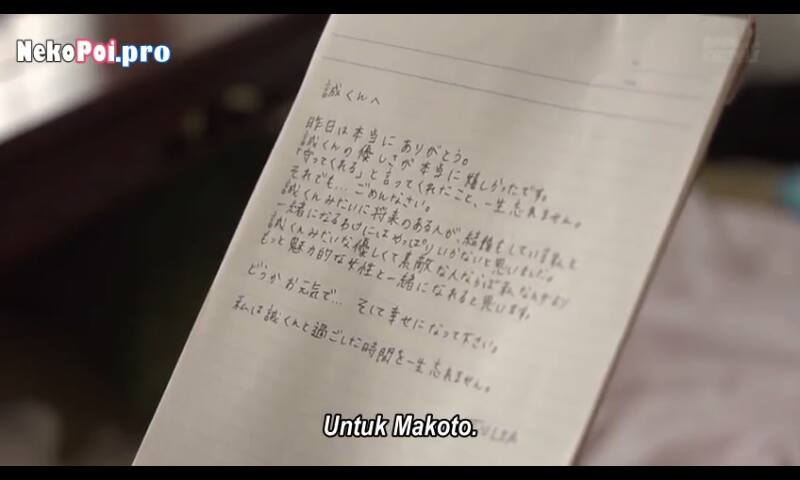 NekoPoi.pro
誠くんへ
昨日は本当にありがとう。
誠くんの優しさが本当に嬉しかったです。
「守ってくれる」と言ってくれたこと、一生忘れません。
それでも…ごめんなさい。
誠くんみたいに将来のある人が、結婚もしている私と
一緒になるわけにはやっぱりいかないと思いました。
誠くんみたいな優しくて素敵な人ならば私なんかより
もっと魅力的な女性と一緒になれると思います。
どうかお元気で… そして幸せになって下さい。
私は誠くんと過ごした時間を一生忘れません。
JULIA
Untuk Makoto.